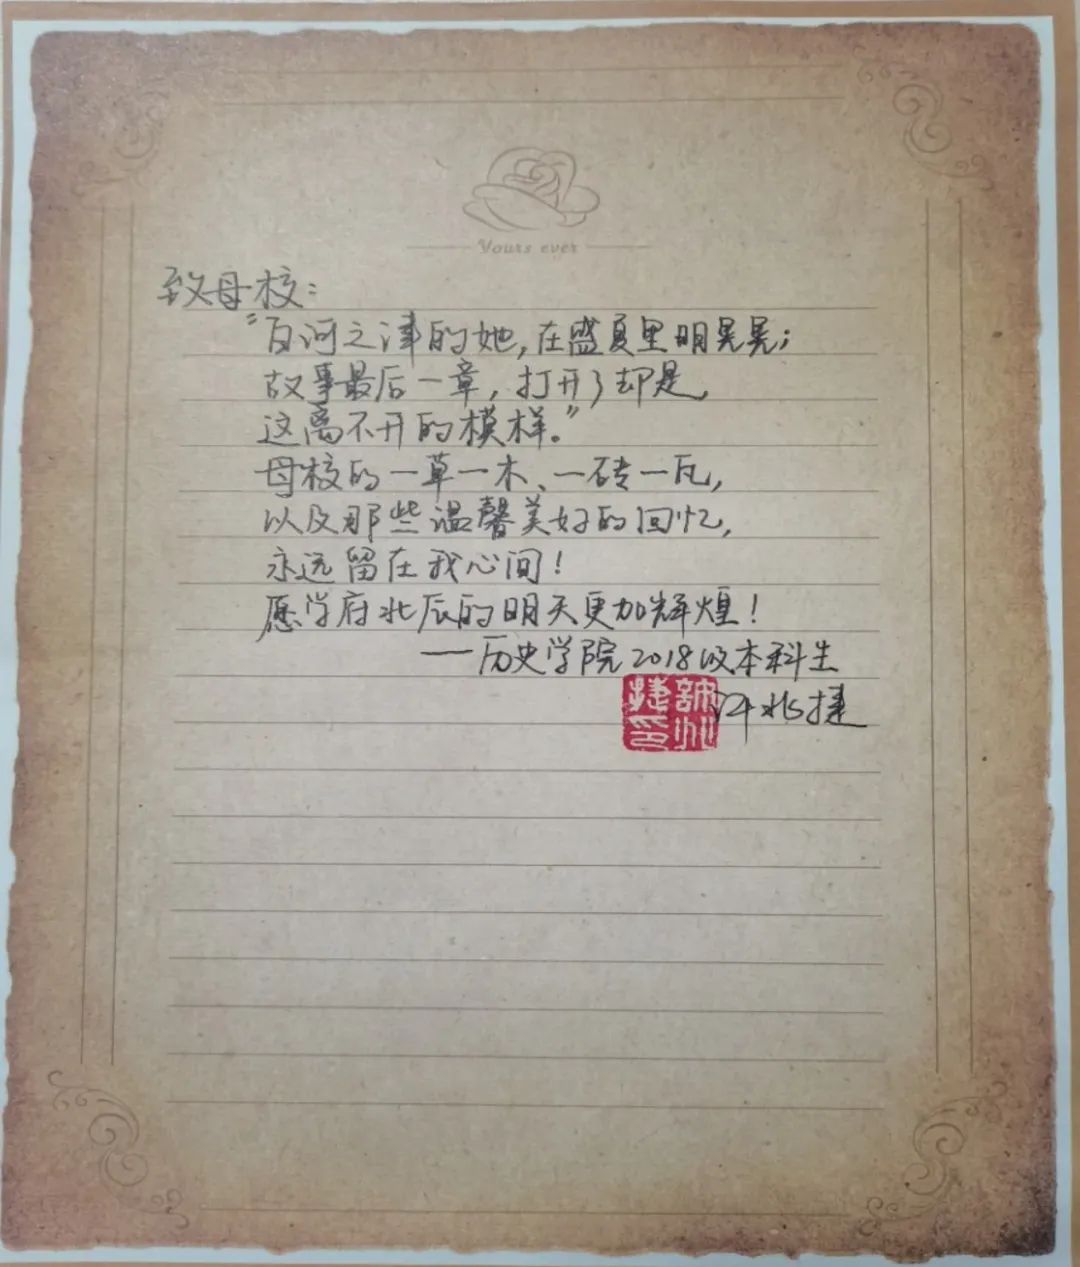 Yours ever
致母校：
“百河之津的她，在盛夏里明晃晃；
故事最后一章，打开了却是，
这离不开的模样。”
母校的一草一木、一砖一瓦，
以及那些温馨美好的回忆，
永远留在我心间！
愿学府北辰的明天更加辉煌！
——历史学院2018级本科生
许兆捷
許兆
捷印